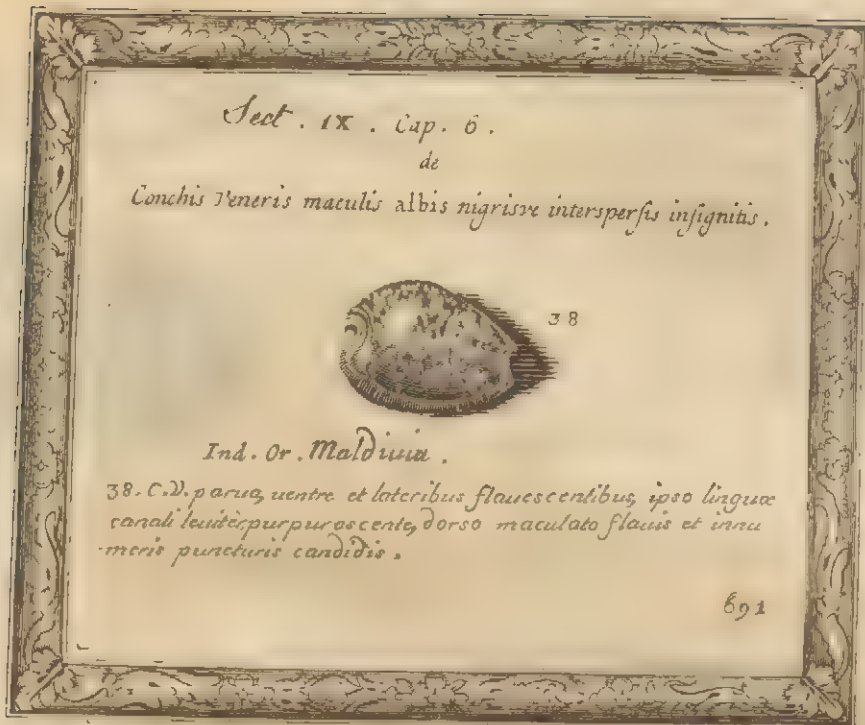 Sect. IX. Cap. 6.
de
Conchis Veneris maculis albis nigrisve interspersis insignitis.
38
Ind. Or. Maldivia.
38. C.V. parua, uentre et lateribus flauescentibus, ipso linguæ
canali leuitèr purpurascente, dorso maculato flauis et innu
meris puncturis candidis.
691